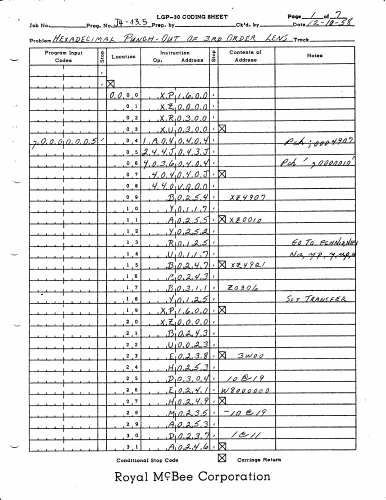 LGP-30 CODING SHEET
Page 1 of 7
Job No. Prog. No. J4-13.5 Prog. by Ck'd. by Date 12-18-58
Problem HEXADECIMAL PUNCH-OUT OF 3RD ORDER LENS Track
Program Input Codes Stop Location Instruction Op. Address Stop Contents of Address Notes
0000 XP1600
01 XZ0000
02 XR0300
03 XU0300
70000005' 04 1A040404 Pch ;0004307
05 244J043J
06 40360404 Pch ',0000010'
07 4040403
08 440V000
09 B0254 XZ4907
10 Y0117
11 A0255 XZ0010
12 Y0252
13 R0125
14 U0117
15 B0247 XZ4921
16 C0243
17 B0311 Z0306
18 Y0125 SET TRANSFER
19 XP1600
20 XZ0000
21 B0243
22 U0023
23 E0238 3W00
24 H0253
25 D0304 10@19
26 E0241 W8000000
27 H0249
28 M0235 -10@19
29 A0253
30 D0237 1@11
31 A0246
Conditional Stop Code Carriage Return
Royal McBee Corporation